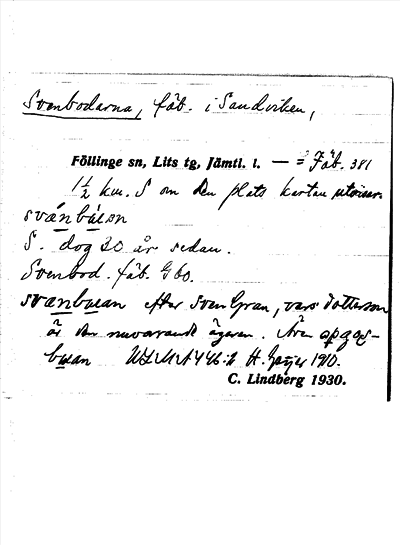 Svenbodarna, fäb. i Sandviken,
Föllinge sn, Lits tg, Jämtl. l. — = Fäb. 381
1 1/2 km. S om den plats kartan utvisar.
S. dog 30 år sedan.
Svenbod. fäb. G 60.
efter Sven Gran, vars dotterson
är den nuvarande ägaren. Även
H. Geijer 1910.
C. Lindberg 1930.